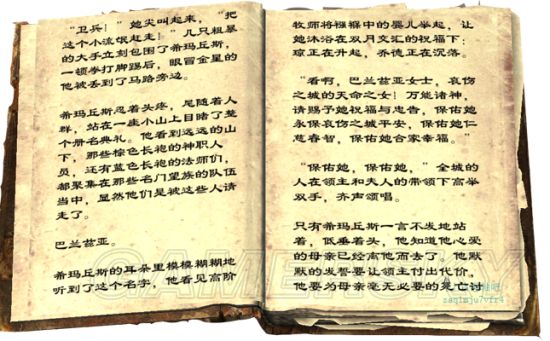 “卫兵！”她尖叫起来，“把
这个小流氓赶走！”几只粗暴
的大手立刻包围了希玛丘斯，
一顿拳打脚踢后，眼冒金星的
他被丢到了马路旁边。
希玛丘斯忍着头疼，尾随着人
群，站在一座小山上目睹了整
个册名典礼。他看到远远的山
下，那些棕色长袍的神职人
员，还有蓝色长袍的法师们，
都聚集在那些名门望族的队伍
当中，显然他们是被这些人请
走了。
巴兰兹亚。
希玛丘斯的耳朵里模模糊糊地
听到了这个名字，他看见高阶
牧师将襁褓中的婴儿举起，让
她沐浴在双月交汇的祝福下：
琼正在升起，乔德正在沉落。
“看啊，巴兰兹亚女士，哀伤
之城的天命之女！万能诸神，
请赐予她祝福与忠告，保佑她
永保哀伤之城平安，保佑她仁
慈春智，保佑她合家幸福。”
“保佑她，保佑她，”全城的
人在领主和夫人的带领下高举
双手，齐声颂唱。
只有希玛丘斯一言不发地站
着，低垂着头，他知道他心爱
的母亲已经离他而去了，他默
默的发誓要让领主付出代价，
他要为母亲毫无必要的死亡讨
GAMERSKY
zaq1mju7vfr4